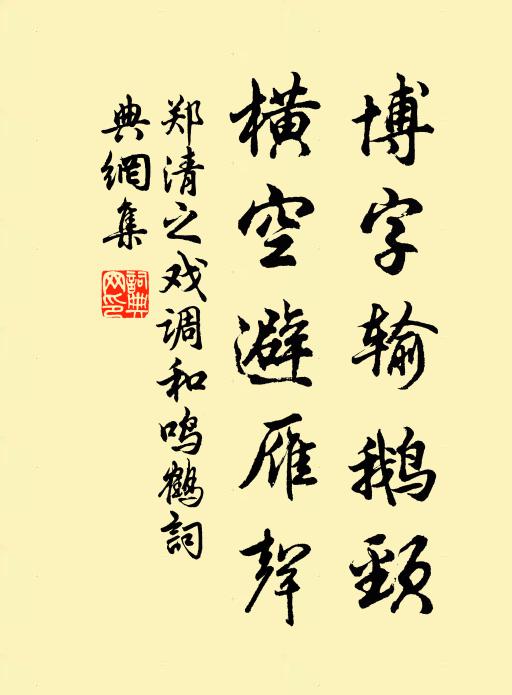 博字输鹅頸
横空避雁聲
郑清之戏调和鸣鹤詞
典網集
詞典
网印